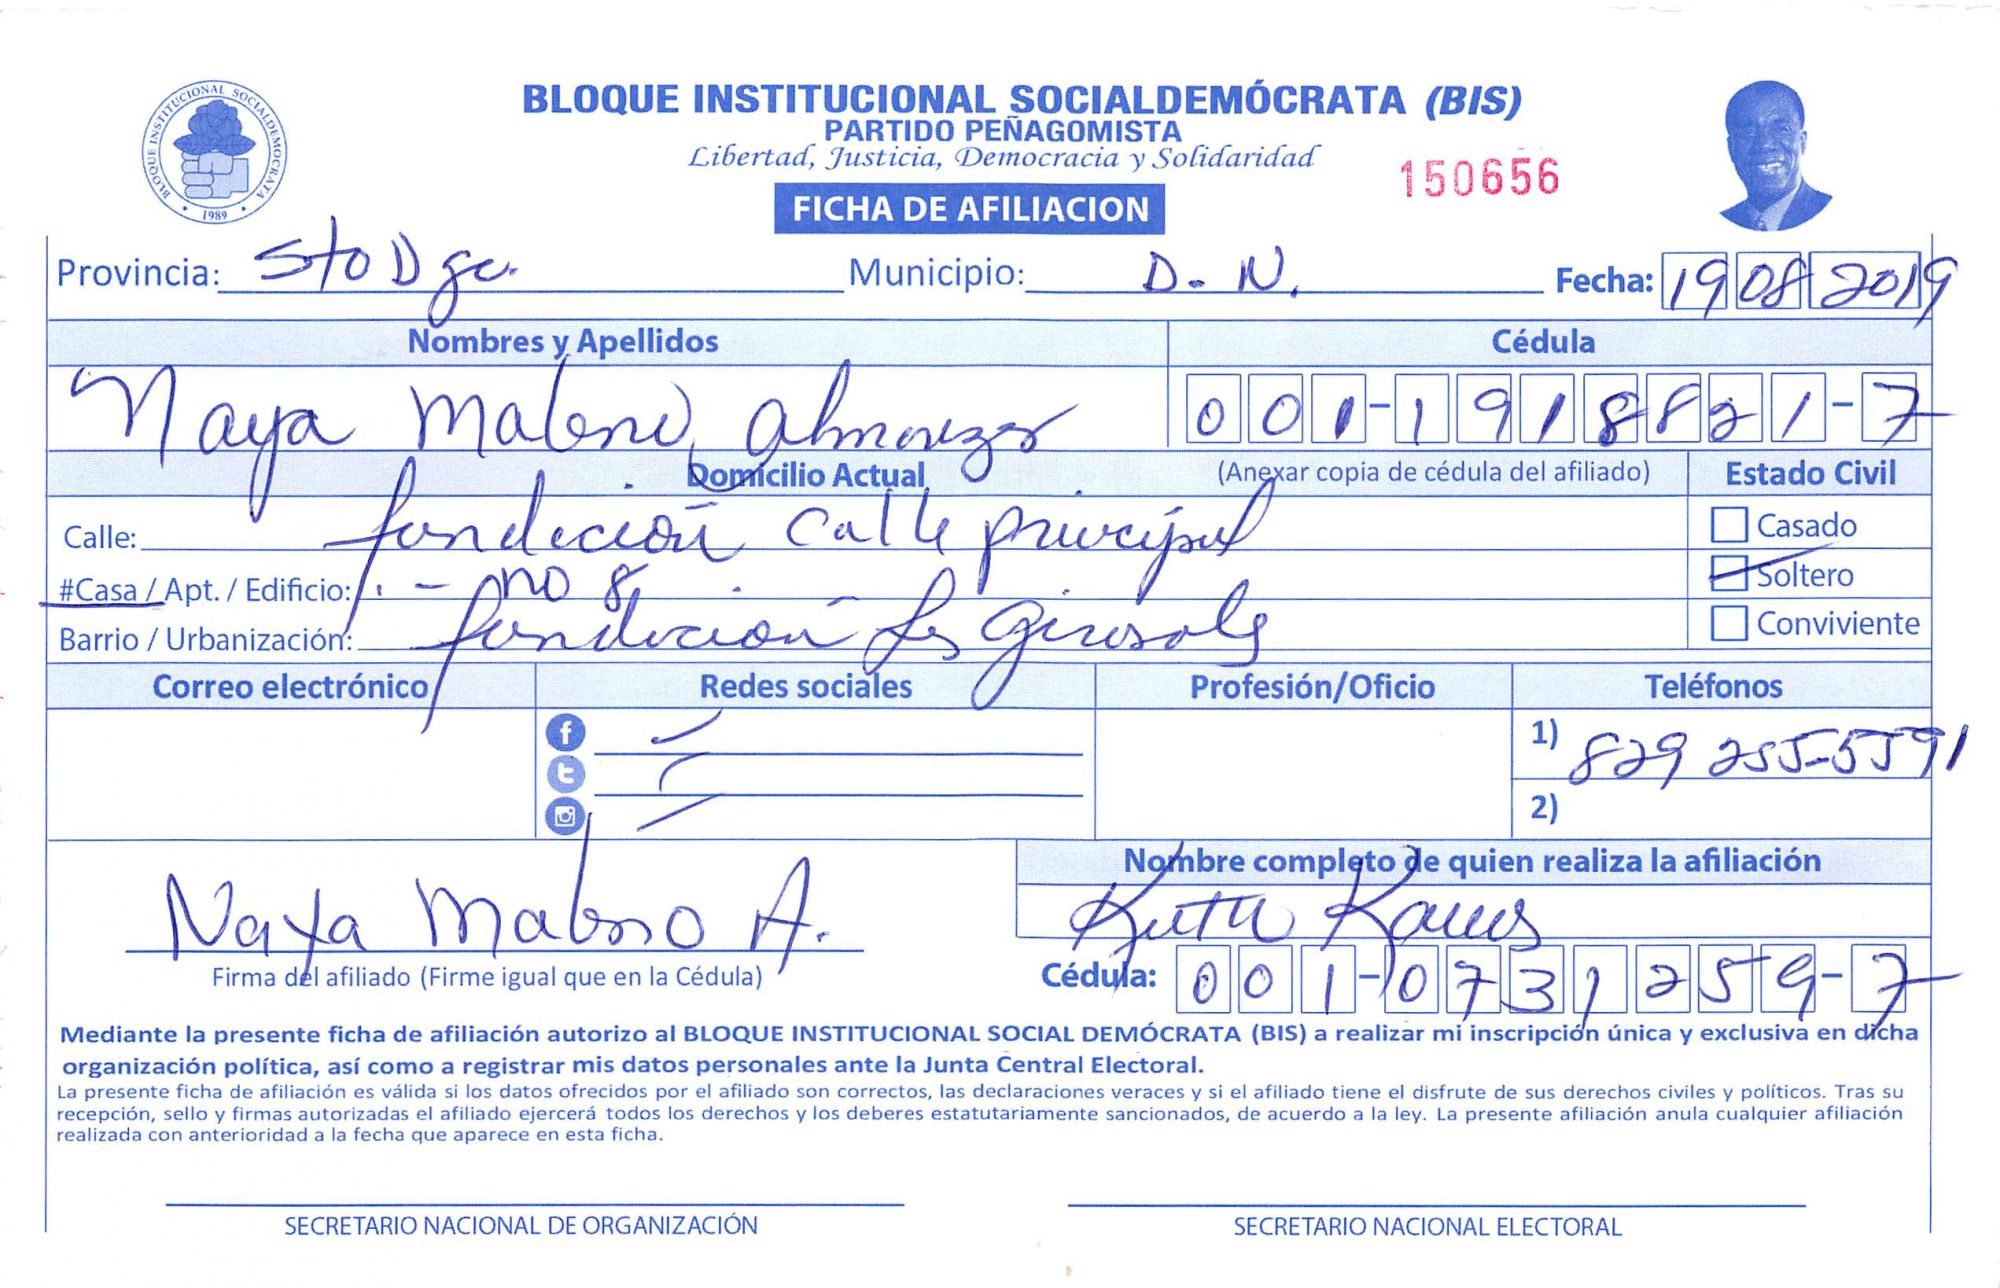 BLOQUE INSTITUCIONAL SOCIALDEMÓCRATA
1989
BLOQUE INSTITUCIONAL SOCIALDEMÓCRATA (BIS)
PARTIDO PEÑAGOMISTA
Libertad, Justicia, Democracia y Solidaridad
150656
FICHA DE AFILIACION
Provincia: Sto Dgo. Municipio: D.N. Fecha: 19 08 2019
Nombres y Apellidos Cédula
Naya Maleno Almonzar 001-1918821-7
Domicilio Actual (Anexar copia de cédula del afiliado) Estado Civil
Calle: fundición Calle principal Casado
#Casa / Apt. / Edificio: - no 8 Soltero
Barrio / Urbanización: fundición Los Girasoles Conviviente
Correo electrónico Redes sociales Profesión/Oficio Teléfonos
1) 829 255-5591
2)
Nombre completo de quien realiza la afiliación
Naya Maleno A. Ruth Ramos
Firma del afiliado (Firme igual que en la Cédula) Cédula: 001-0731259-7
Mediante la presente ficha de afiliación autorizo al BLOQUE INSTITUCIONAL SOCIAL DEMÓCRATA (BIS) a realizar mi inscripción única y exclusiva en dicha
organización política, así como a registrar mis datos personales ante la Junta Central Electoral.
La presente ficha de afiliación es válida si los datos ofrecidos por el afiliado son correctos, las declaraciones veraces y si el afiliado tiene el disfrute de sus derechos civiles y políticos. Tras su
recepción, sello y firmas autorizadas el afiliado ejercerá todos los derechos y los deberes estatutariamente sancionados, de acuerdo a la ley. La presente afiliación anula cualquier afiliación
realizada con anterioridad a la fecha que aparece en esta ficha.
SECRETARIO NACIONAL DE ORGANIZACIÓN SECRETARIO NACIONAL ELECTORAL